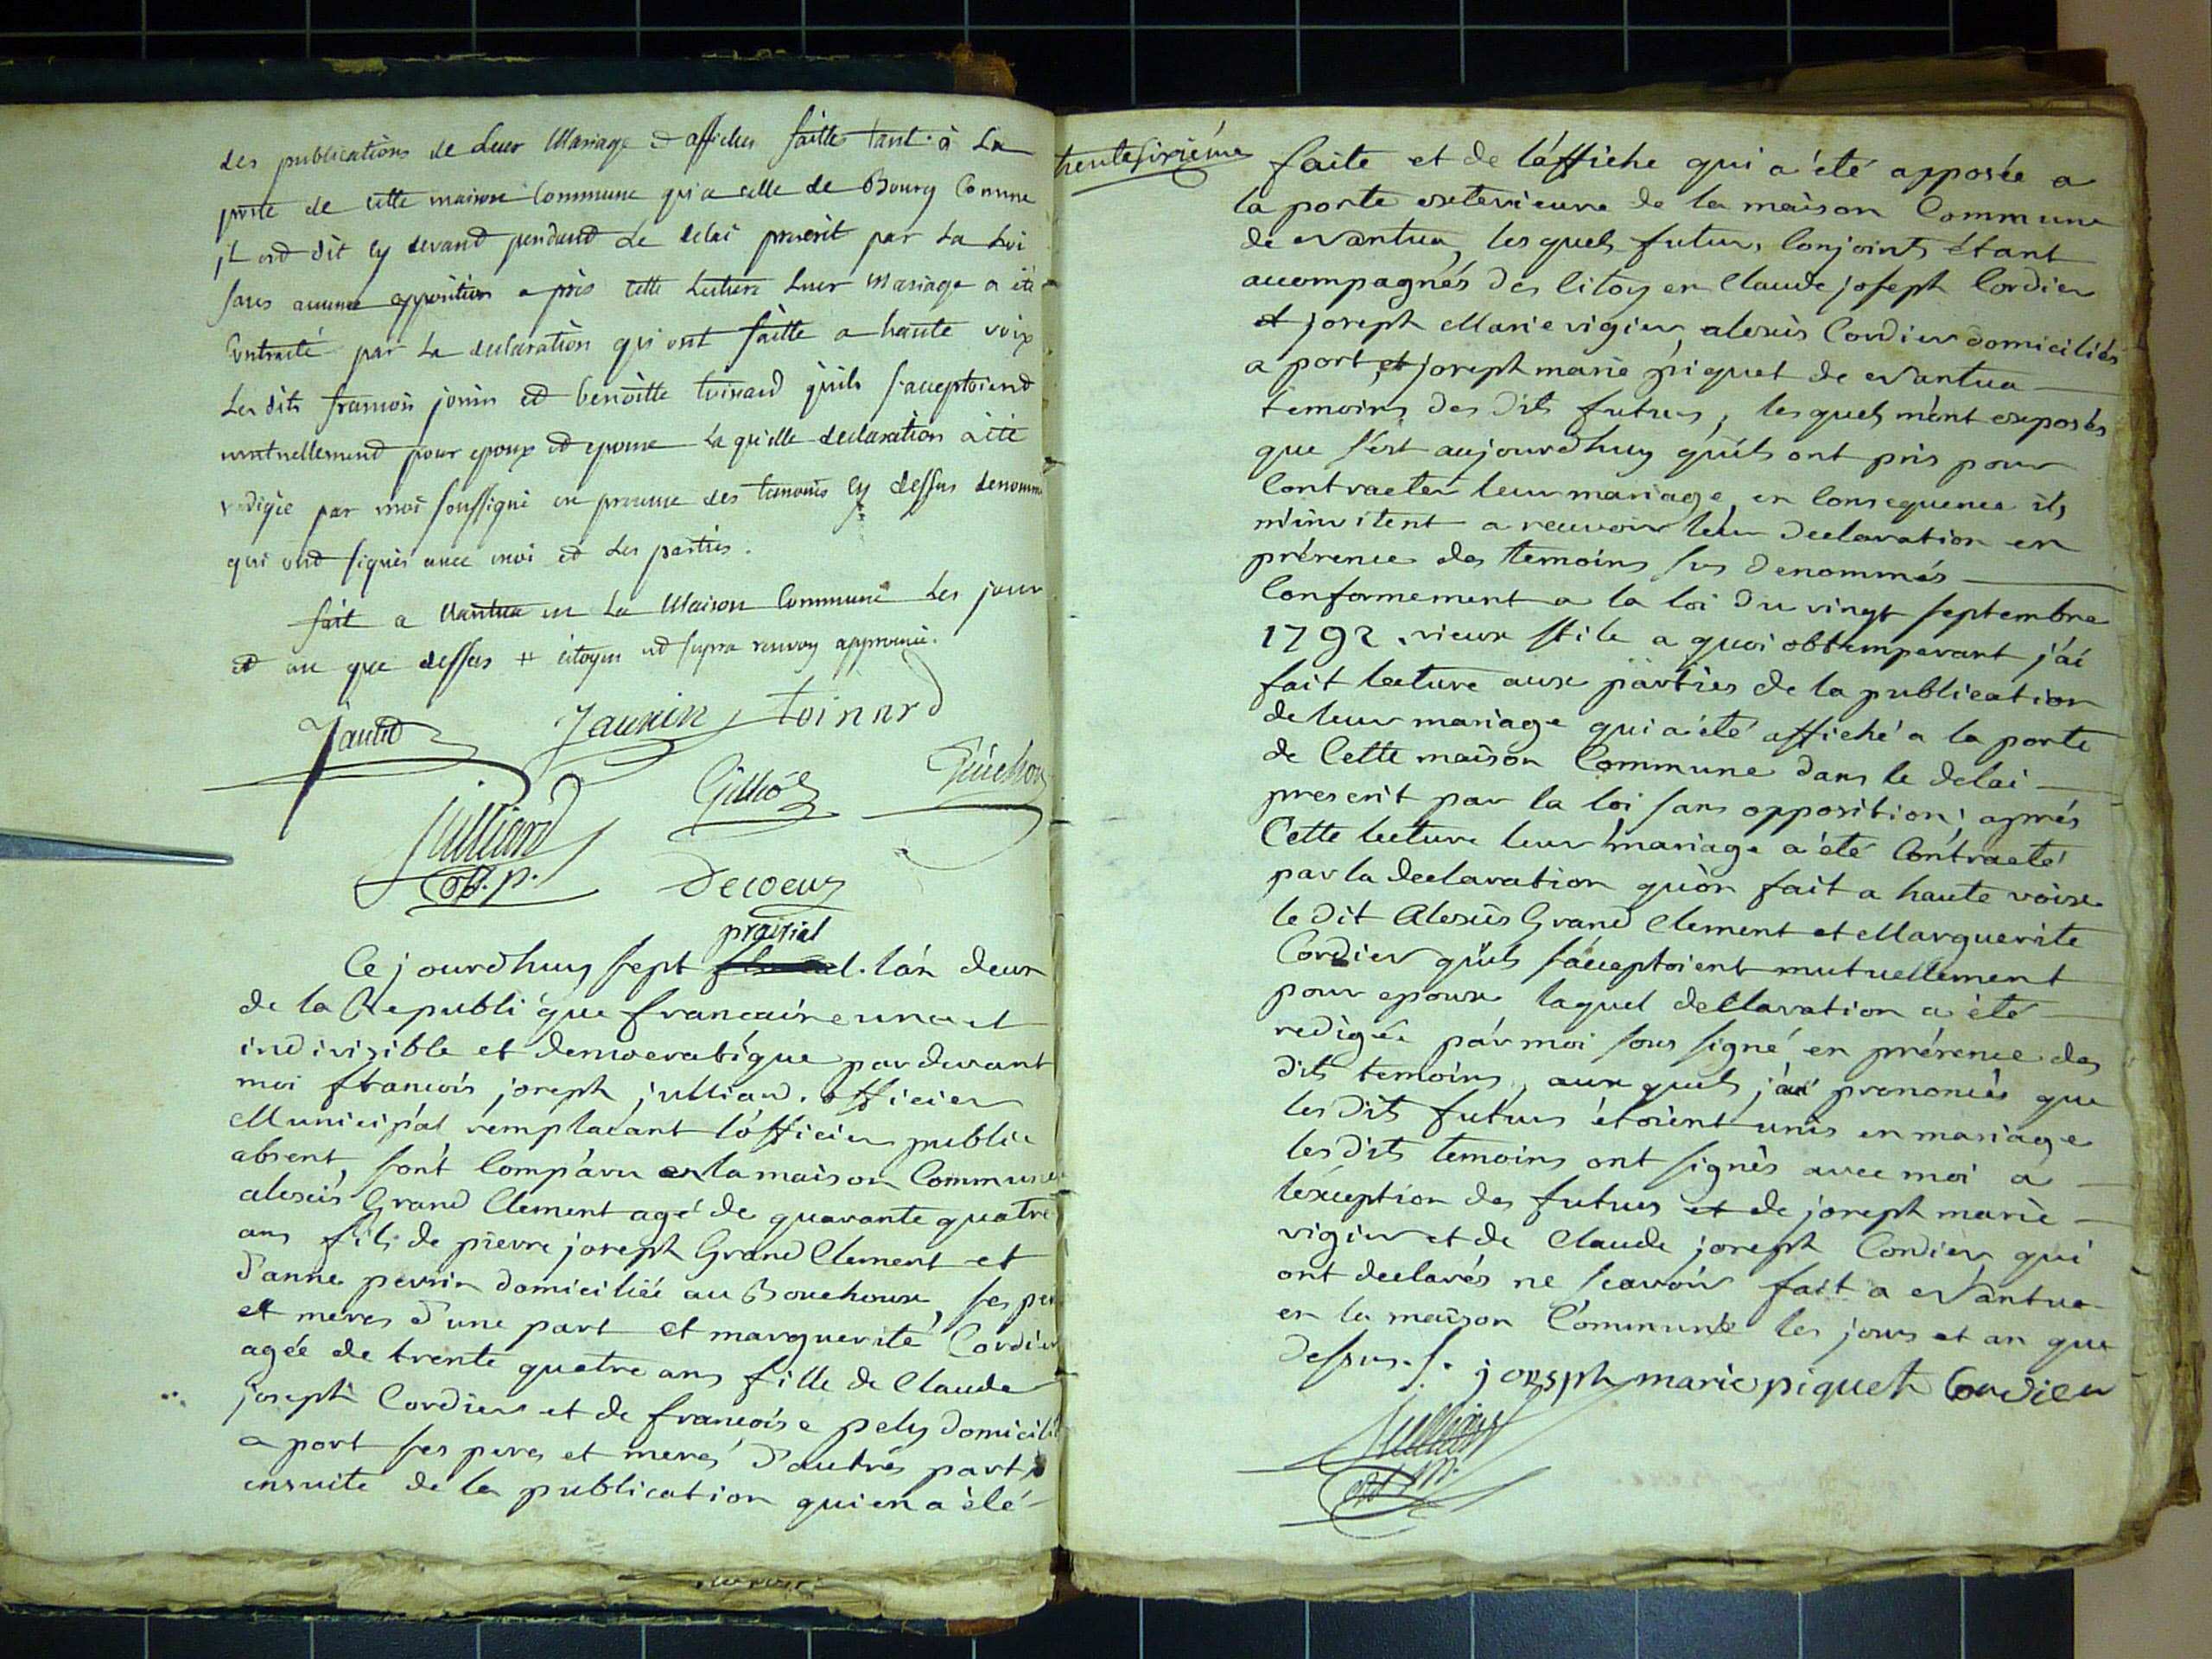 des publications de Leur Mariage et affiches faitte tant à La
porte de cette maison Commune qu'a celle de Bourg Comme
il est dit cy devant pendant Le delai prescrit par La Loi
sans aucune opposition après cette Lecture Leur Mariage a été
Contracté par La declaration qu'ont faitte a haute voix
Les dits françois jonin et benoitte toinard qu'ils s'acceptoient
mutuellement pour epoux et epouse La quelle declaration a été
redigée par moi soussigné en presence des temoins cy dessus denommé
qui ont signés avec moi et Les parties.
fait a Nantua en La Maison Commune Les jour
et an que dessus # citoyen ut supra renvoy approuvé.
Jantet Jaunin toinard
Gilliod Guichon
Julliard
Off. p. Decoeur
prairial
Cejourdhuy sept l'an deux
de la Republi'que francaise une et
indivisible et democratique par devant
moi francois joseph julliard. officier
Municipal remplacant l'officier public
absent, sont Comparu en la maison Commune
alexis Grand Clement agé de quarante quatre
ans fils de pierre joseph Grand Clement et
d'anne perrin domicilié au Bouchoux, ses per
et meres d'une part et marguerite Cordier
agée de trente quatre ans fille de Claude
joseph Cordier et de francoise pely domicilié
a port ses peres et meres d'autres part
ensuite de la publication qui en a été
trentesixiéme faite et de l'affiche qui a été apposée a
la porte exterieure de la maison Commune
de Nantua, les quels futurs Conjoints étant
accompagnés des Citoyen Claude joseph Cordier
et joseph Marie vigier, alexis Cordier domiciliés
a port, et joseph marie piquet de Nantua
temoins des dits futurs, les quels m'ont exposés
que s'est aujourdhuy qu'ils ont pris pour
Contracter leur mariage, en Consequence ils
m'invitent a recevoir leur declaration en
présence des temoins sus denommés
Conformement a la loi du vingt septembre
1792. vieux stile a quoi obtemperant j'ai
fait lecture aux parties de la publication
de leur mariage qui a été affiché a la porte
de Cette maison Commune dans le delai
prescrit par la loi sans opposition; aprés
Cette lecture leur mariage a été Contracté
par la declaration qu'on fait a haute voixe
le dit Alexis Grand Clement et Marguerite
Cordier qu'ils s'acceptoient mutuellement
pour epoux laquel declaration a été
redigée par moi sous signé en présence des
dits temoins, aux quels j'ai prenoncés que
les dits futurs étoient unis en mariage
les dits temoins ont signés avec moi a
l'exception des futurs et de joseph marie
vigier et de Claude joseph Cordier qui
ont declarés ne scavoir fait a Nantua
en la maison Commune les jours et an que
dessus. joseph marie piquet Cordier
Julliard
off. p.